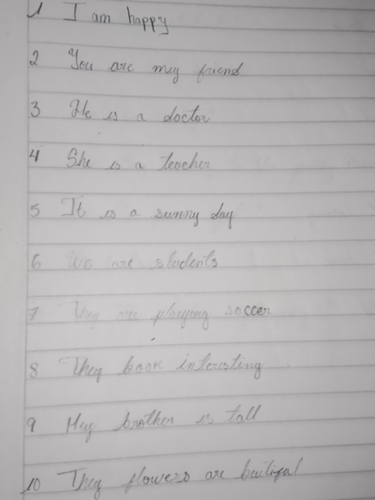 1 I am happy
2 You are my friend
3 He is a doctor
4 She is a teacher
5 It is a sunny day
6 We are students
7 They are playing soccer
8 They book interesting
9 My brother is tall
10 They flowers are beutyfal